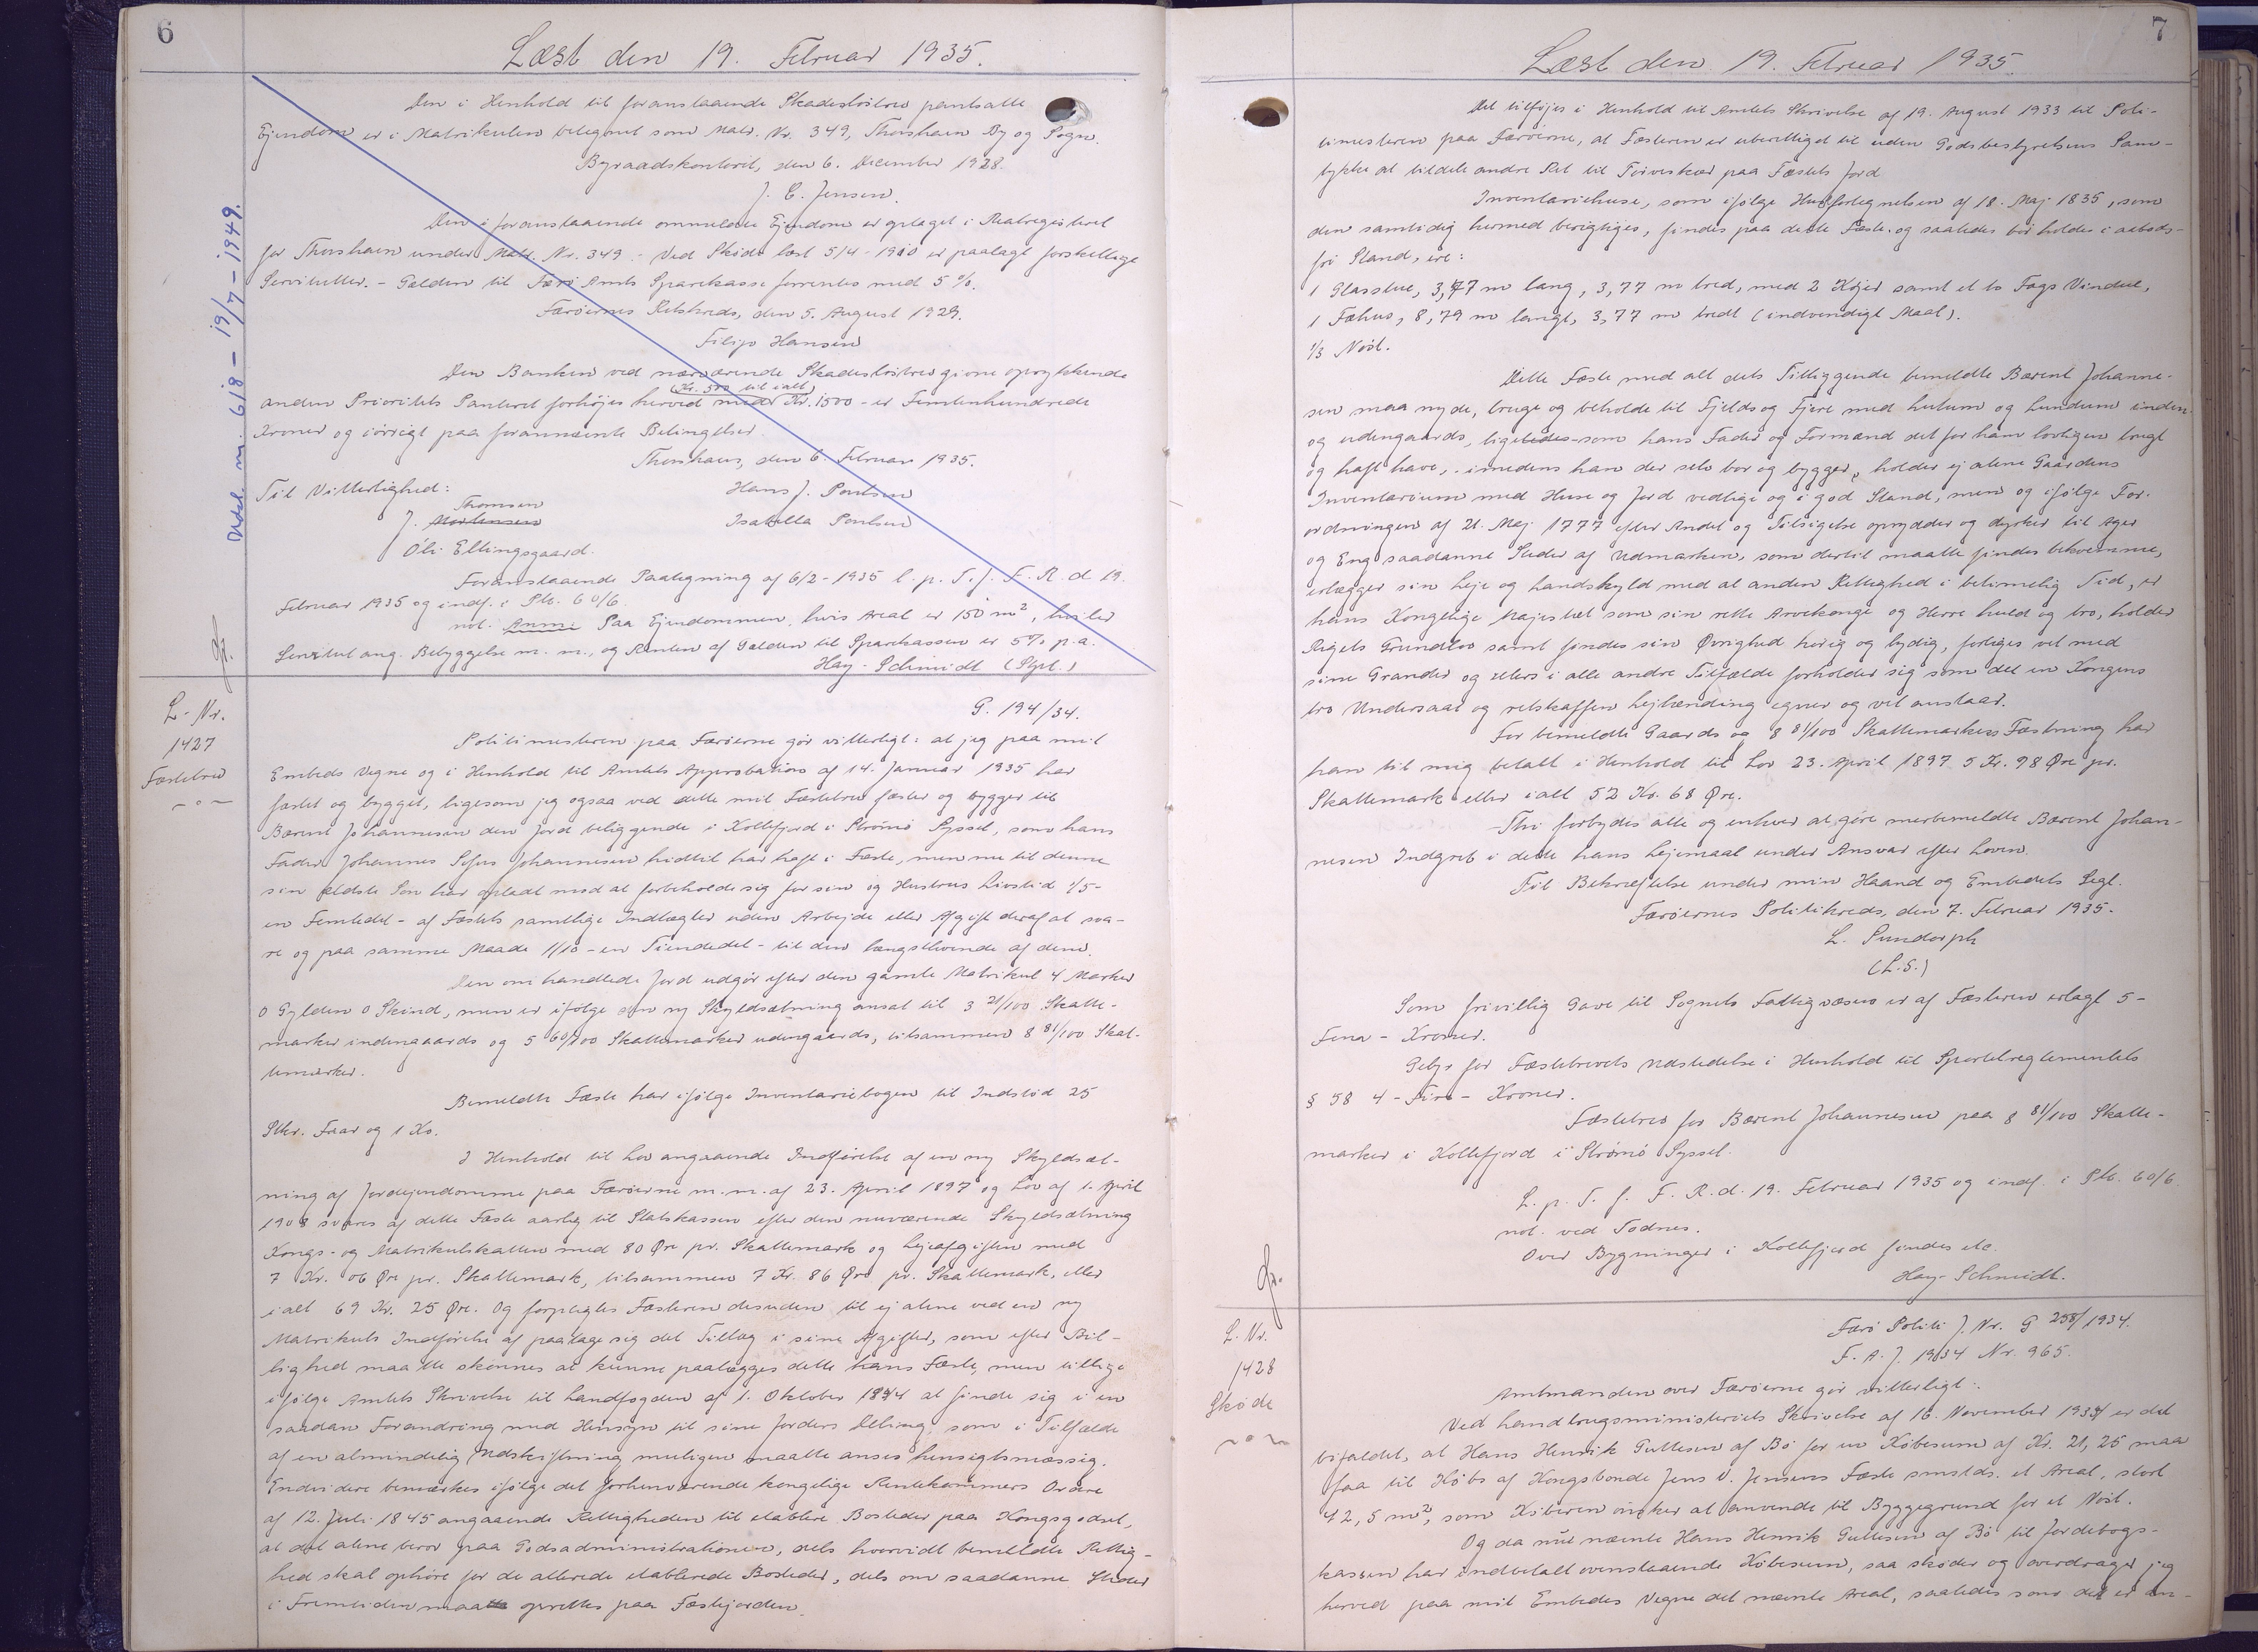 6
Læst den 19. Februar 1935.
Den i Henhold til foranstaaende Skadesløsbrev pantsatte
Ejendom er i Matrikulen betegnet som Matr. Nr. 349, Thorshavn By og Sogn.
Byraadskontoret, den 6. December 1928.
J. C. Jensen.
Den i foranstaaende ommeldte Ejendom er optaget i Realregisteret
for Thorshavn under Matr. Nr. 349. - Ved Skøde læst 5/4 - 1910 er paalagt forskellige
Servitutter. - Gælden til Færø Amts Sparekasse forrentes med 5 %.
Færøernes Retskreds, den 5. August 1929.
Filip Hansen
Den Banken ved nærværende Skadesløsbrev givne oprykkende
(Kr. 500 til ialt)
anden Prioritets Panteret forhøjes herved med Kr. 1500 - er Femtenhundrede
Kroner og iøvrigt paa forannævnte Betingelser.
Thorshavn, den 6. Februar 1935.
Til Vitterlighed: Hans J. Poulsen
Thomsen
J. Mortensen Isabella Poulsen
Óli Ellingsgaard.
Foranstaaende Paategning af 6/2 - 1935 l. p. T. f. F. R. d. 19.
Februar 1935 og indf. i Ptk. 60/6
not. Anm: Paa Ejendommen, hvis Areal er 150 m², hviler
Servitut ang. Bebyggelse m. m., og Renten af Gælden til Sparekassen er 5% p.a.
Hay-Schmidt (Spt.)
Udsl. m. 618 - 19/7 - 1949.
L-Nr.
1427
Fæstebrev
G. 194/34.
Politimesteren paa Færøerne gør vitterligt: at jeg paa mit
Embeds Vegne og i Henhold til Amtets Approbation af 14. Januar 1935 har
fæstet og bygget, ligesom jeg ogsaa ved dette mit Fæstebrev fæster og bygger til
Bærent Johannesen den Jord beliggende i Kollefjord i Strømø Syssel, som hans
Fader Johannes Sofus Johannesen hidtil har haft i Fæste, men nu til denne
sin ældste Søn har opladt mod at forbeholde sig for sin og Hustrus Livstid 1/5 -
en Femtedel - af Fæstets samtlige Indtægter uden Arbejde eller Afgift deraf at sva-
re og paa samme Maade 1/10 - en Tiendedel - til den længstlevende af dem.
Den omhandlede Jord udgør efter den gamle Matrikul 4 Marker
0 Gylden 0 Skind, men er ifølge den ny Skyldsætning ansat til 3 21/100 Skatte-
marker indengaards og 5 60/100 Skattemarker udengaards, tilsammen 8 81/100 Skat-
temarker.
Bemeldte Fæste har ifølge Inventariebogen til Indstød 25
Stkr. Faar og 1 Ko.
I Henhold til Lov angaaende Indførelse af en ny Skyldsæt-
ning af Jordejendomme paa Færøerne m.m. af 23. April 1897 og Lov af 1. April
1908 svares af dette Fæste aarlig til Statskassen efter den nuværende Skyldsætning
Kongs- og Matrikulskatten med 80 Øre pr. Skattemark og Lejeafgiften med
7 Kr. 06 Øre pr. Skattemark, tilsammen 7 Kr. 86 Øre pr. Skattemark, eller
ialt 69 Kr. 25 Øre. Og forpligtes Fæsteren desuden til ej alene ved en ny
Matrikuls Indførelse at paatage sig det Tillæg i sine Afgifter, som efter Bil-
lighed maatte skønnes at kunne paalægges dette hans Fæste, men tillige
ifølge Amtets Skrivelse til Landfogden af 1. Oktober 1874 at finde sig i en
saadan Forandring med Hensyn til sine Jorders Deling, som i Tilfælde
af en almindelig Udskiftning muligen maatte anses hensigtsmæssig.
Endvidere bemærkes ifølge det forhenværende kongelige Rentekammers Ordre
af 12. Juli 1845 angaaende Rettigheden til etablere Bosteder paa Kongsgodset,
at det alene beror paa Godsadministrationen, dels hvorvidt bemeldte Rettig-
hed skal ophøre for de allerede etablerede Bosteder, dels om saadanne Steder
i Fremtiden maatte oprettes paa Fæstejorden.
7
Læst den 19. Februar 1935.
Det tilføjes i Henhold til Amtets Skrivelse af 19. August 1933 til Poli-
timesteren paa Færøerne, at Fæsteren er uberettiget til uden Godsbestyrelsens Sam-
tykke at tildele andre Ret til Tørveskær paa Fæstets Jord
Inventariehuse, som ifølge Husfortegnelsen af 18. Maj 1835, som
den samtidig hermed berigtiges, findes paa dette Fæste og saaledes bør holdes i aabods-
fri Stand, ere:
1 Glasstue, 3,77 m lang, 3,77 m bred, med 2 Køjer samt et to Fags Vindue,
1 Fæhus, 8,79 m langt, 3,77 m bredt (indvendigt Maal).
1/3 Nøst.
Dette Fæste med alt dets Tilliggende bemeldte Bærent Johanne-
sen maa nyde, bruge og beholde til Fjelds og Fjære med lutum og lundum inden-
og udengaards, ligeledes som hans Fader og Formænd det før ham lovligen brugt
og haft have, imedens han der selv bor og bygger, holder ej alene Gaardens
Inventarium med Huse og Jord vedlige og i god Stand, men og ifølge For-
ordningen af 21. Maj 1777 efter Andel og Tilsigelse oprydder og dyrker til Ager
og Eng saadanne Steder af Udmarken, som dertil maatte findes bekvemme,
erlægger sin Leje og Landskyld med al anden Rettighed i betimelig Tid, er
hans Kongelige Majestæt som sin rette Arvekonge og Herre huld og tro, holder
Rigets Grundlov samt findes sin Øvrighed hørig og lydig, forliges vel med
sine Grander og ellers i alle andre Tilfælde forholder sig som det en Kongens
tro Undersaat og retskaffen Lejlænding egner og vel anstaar.
For bemeldte Gaards og 8 81/100 Skattemarkers Fæstning har
han til mig betalt i Henhold til Lov 23. April 1897 5 Kr. 98 Øre pr.
Skattemark eller ialt 52 Kr. 68 Øre.
Thi forbydes alle og enhver at gøre merbemeldte Bærent Johan-
nesen Indgreb i dette hans Lejemaal under Ansvar efter Loven.
Til Bekræftelse under min Haand og Embedets Segl.
Færøernes Politikreds, den 7. Februar 1935.
L. Sundorph
(L.S.)
Som frivillig Gave til Sognets Fattigvæsen er af Fæsteren erlagt 5 -
Fem - Kroner.
Gebyr for Fæstebrevets Udstedelse i Henhold til Sportelreglementets
§ 58 4 - Fire - Kroner.
Fæstebrev for Bærent Johannesen paa 8 81/100 Skatte-
marker i Kollefjord i Strømø Syssel.
L. p. T. f. F. R. d. 19. Februar 1935 og indf. i Ptk. 60/6
not. ved Todnes.
Over Bygninger i Kollefjord findes etc.
Hay-Schmidt.
L. Nr.
1428
Skøde
Færø Politi J. Nr. G 258/1934.
F. A. J. 1934 Nr. 965.
Amtmanden over Færøerne gør vitterligt:
Ved Landbrugsministeriets Skrivelse af 16. November 1934 er det
bifaldet, at Hans Henrik Guttesen af Bø for en Købesum af Kr. 21,25 maa
faa til Købs af Kongsbonde Jens V. Jensens Fæste smstds. et Areal, stort
42,5 m², som Køberen ønsker at anvende til Byggegrund for et Nøst.
Og da nu nævnte Hans Henrik Guttesen af Bø til Jordebogs-
kassen har indbetalt ovenstaaende Købesum, saa skøder og overdrager jeg
herved paa mit Embedes Vegne det nævnte Areal, saaledes som det er an-